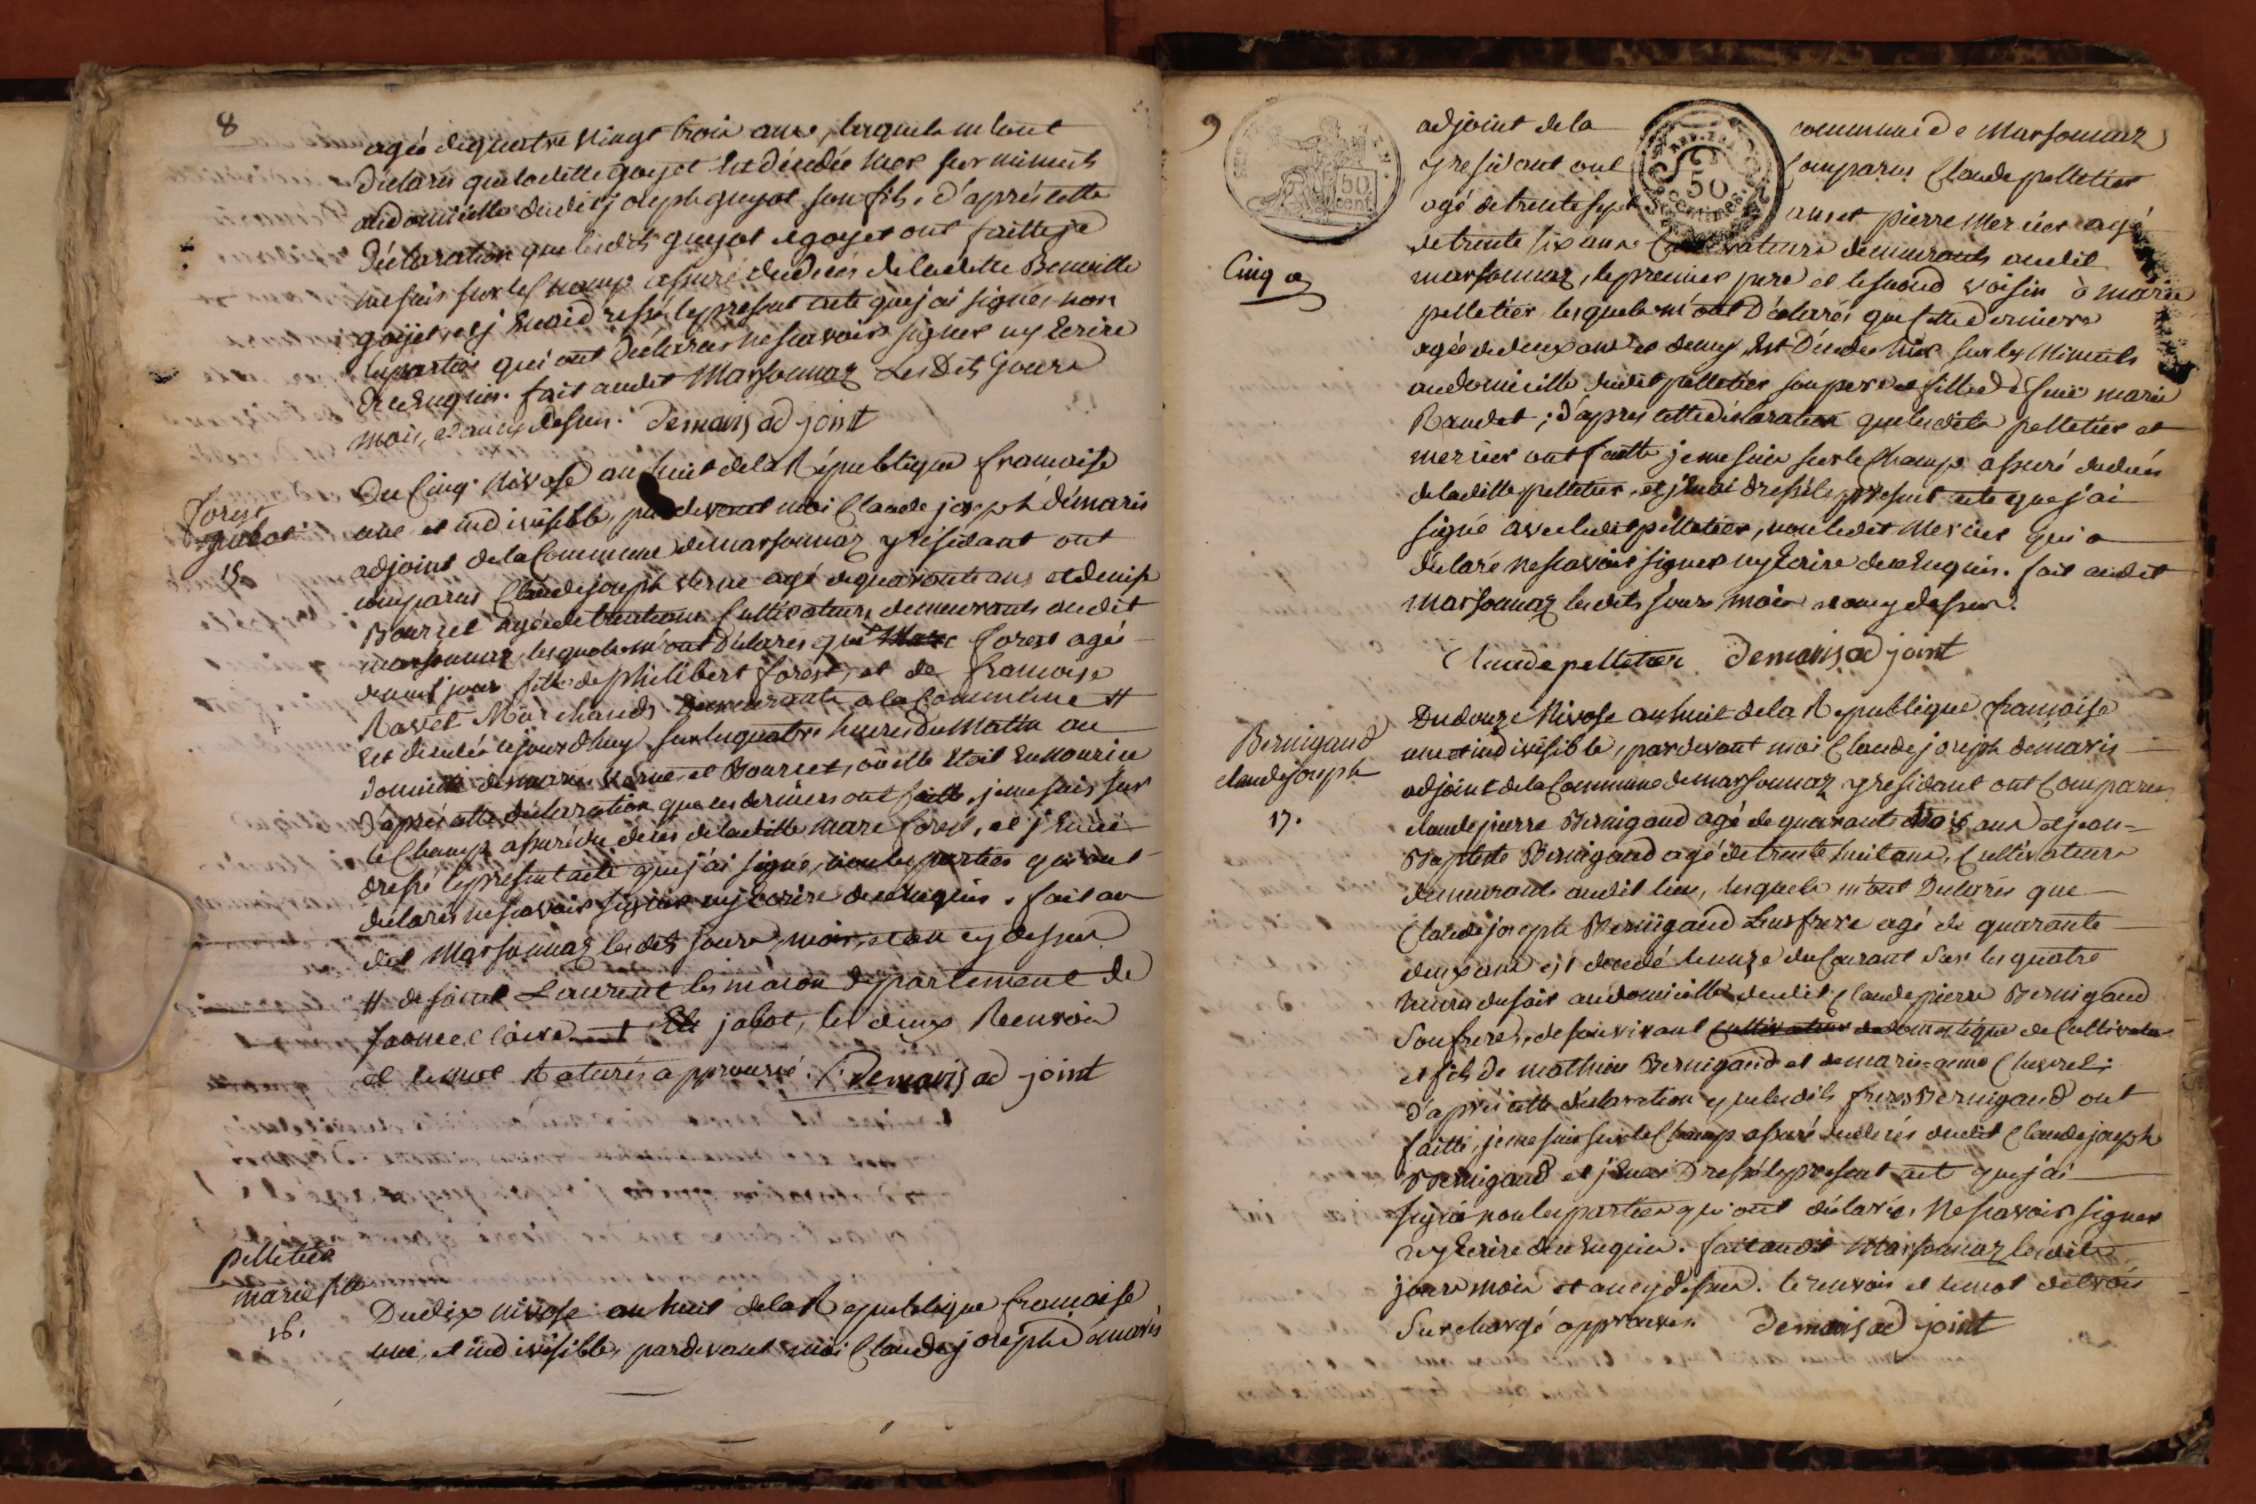 8
agée de quatre vingt trois ans, lesquels m'ont
déclarés que ladette goyet est décédée hier sur minuits
au domicille dudit joseph guyot son fils, d'après cette
déclaration que lesdits guyot et goyet ont faitte je
me suis sur le champ assuré du décés de ladette Benoitte
goyet, et j'en ai dressé le present acte que j'ai signés, non
les parties qui ont déclarés ne scavoir signer ny Ecrire
de ce Enquis. fait audit Marsonnaz Les Dits Jours
mois, et an cy dessus. Demaris adjoint
Forest
jabot
15.
Du Cinq Nivose an huit de la République francaise
une et indivisible, par devant moi Claude joseph démaris
adjoint de la Commune de marsonnaz y résidant ont
comparus Claude joseph Verne agé de quarante ans et denise
Bourcet agée de trente ans Cultivateurs demeurants audit
marsonnaz, lesquels m'ont Déclarés que Marc forest agé
de neuf jours fille de philibert forest, et de francoise
Ravet Marchands demeurants a la Commune #
est décédée ce jourd'huy sur les quatre heures du Matin au
domicille des mariés Verne et Bourcet, ou elle étoit En Nourice
d'après cette déclaration que ces derniers ont faitte, je me suis sur
le Champ assuré du décés de ladette Marc forest, et j'En ai
dressé le present acte que j'ai signé, non les parties qui ont
déclarés ne scavoir signer ny Ecrire de ce Enquis. fait au
dit Marsonnaz les dits jours, mois, et an cy dessus
# de saint Laurent les macon departement de
saone et loire jabot, les deux Renvois
et le mot Raturés approuvé. Demaris adjoint
pelletier
marie fille
16.
Du dix nivose an huit de la Republique francaise
une, et indivisible, pardevant moi Claude joseph démaris
9
50
cent.
50
centimes
Cinq
adjoint de la commune de Marsonnaz
y residant ont Comparus Claude pelletier
agé de trente sept ans et pierre Mercier agé
de trente six ans Cultivateurs demeurants audit
marsonnaz, le premier pere et le second voisin à marie
pelletier, lesquels m'ont Déclarés que cette derniere
agée de deux ans et demy est Décedée hier sur les Minuits
au domicille dudit pelletier son pere et fille de feue marie
Raudet; d'après cette déclaration que lesdits pelletier et
mercier ont faitte je me suis sur le Champ assuré du décés
de ladette pelletier, et j'en ai dressé le present acte que j'ai
signé avec ledit pelletier, non ledit Mercier qui a
déclaré ne scavoir signer ny Ecrire de ce Enquis. fait audit
Marsonnaz les dits jours mois et an cy dessus.
Claude pelletier Demaris adjoint
Bernigaud
claude joseph
17.
Du douze Nivose an huit de la Republique francaise
une et indivisible, pardevant moi Claude joseph demaris
adjoint de la Commune de marsonnaz y residant ont Comparus
claude pierre Bernigaud agé de quarante trois ans et jean-
Baptiste Bernigaud agé de trente huit ans, Cultivateurs
demeurants audit lieu, lesquels m'ont Déclarés que
Claude joseph Bernigaud Leur frere agé de quarante
deux ans est décedé le onze du Courant Sur les quatre
heures du soir au domicille dudit Claude pierre Bernigaud
Son frere, de son vivant Cultivateur domestique de Cultivateur
et fils de mathieu Bernigaud et de marie-anne Chevrel;
d'après cette déclaration que lesdits freres Bernigaud ont
faitte, je me suis sur le Champ assuré du décés dudit Claude joseph
Bernigaud et j'en ai Dressé le present acte que j'ai
signé non les parties qui ont déclarés Ne scavoir signer
ny Ecrire de ce Enquis. fait audit Marsonnaz lesdits
jours mois et an cy dessus. le renvois et le mot de trois
Surchargé approuvés Demaris adjoint